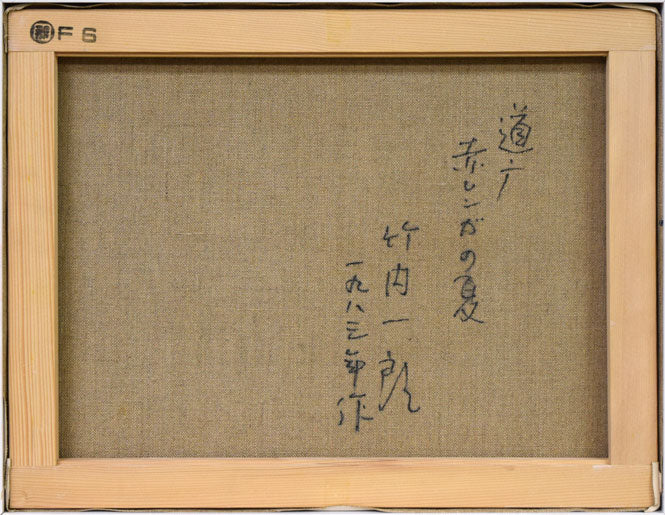 F6
道庁
赤レンガの夏
竹内一郎
一九八三年作